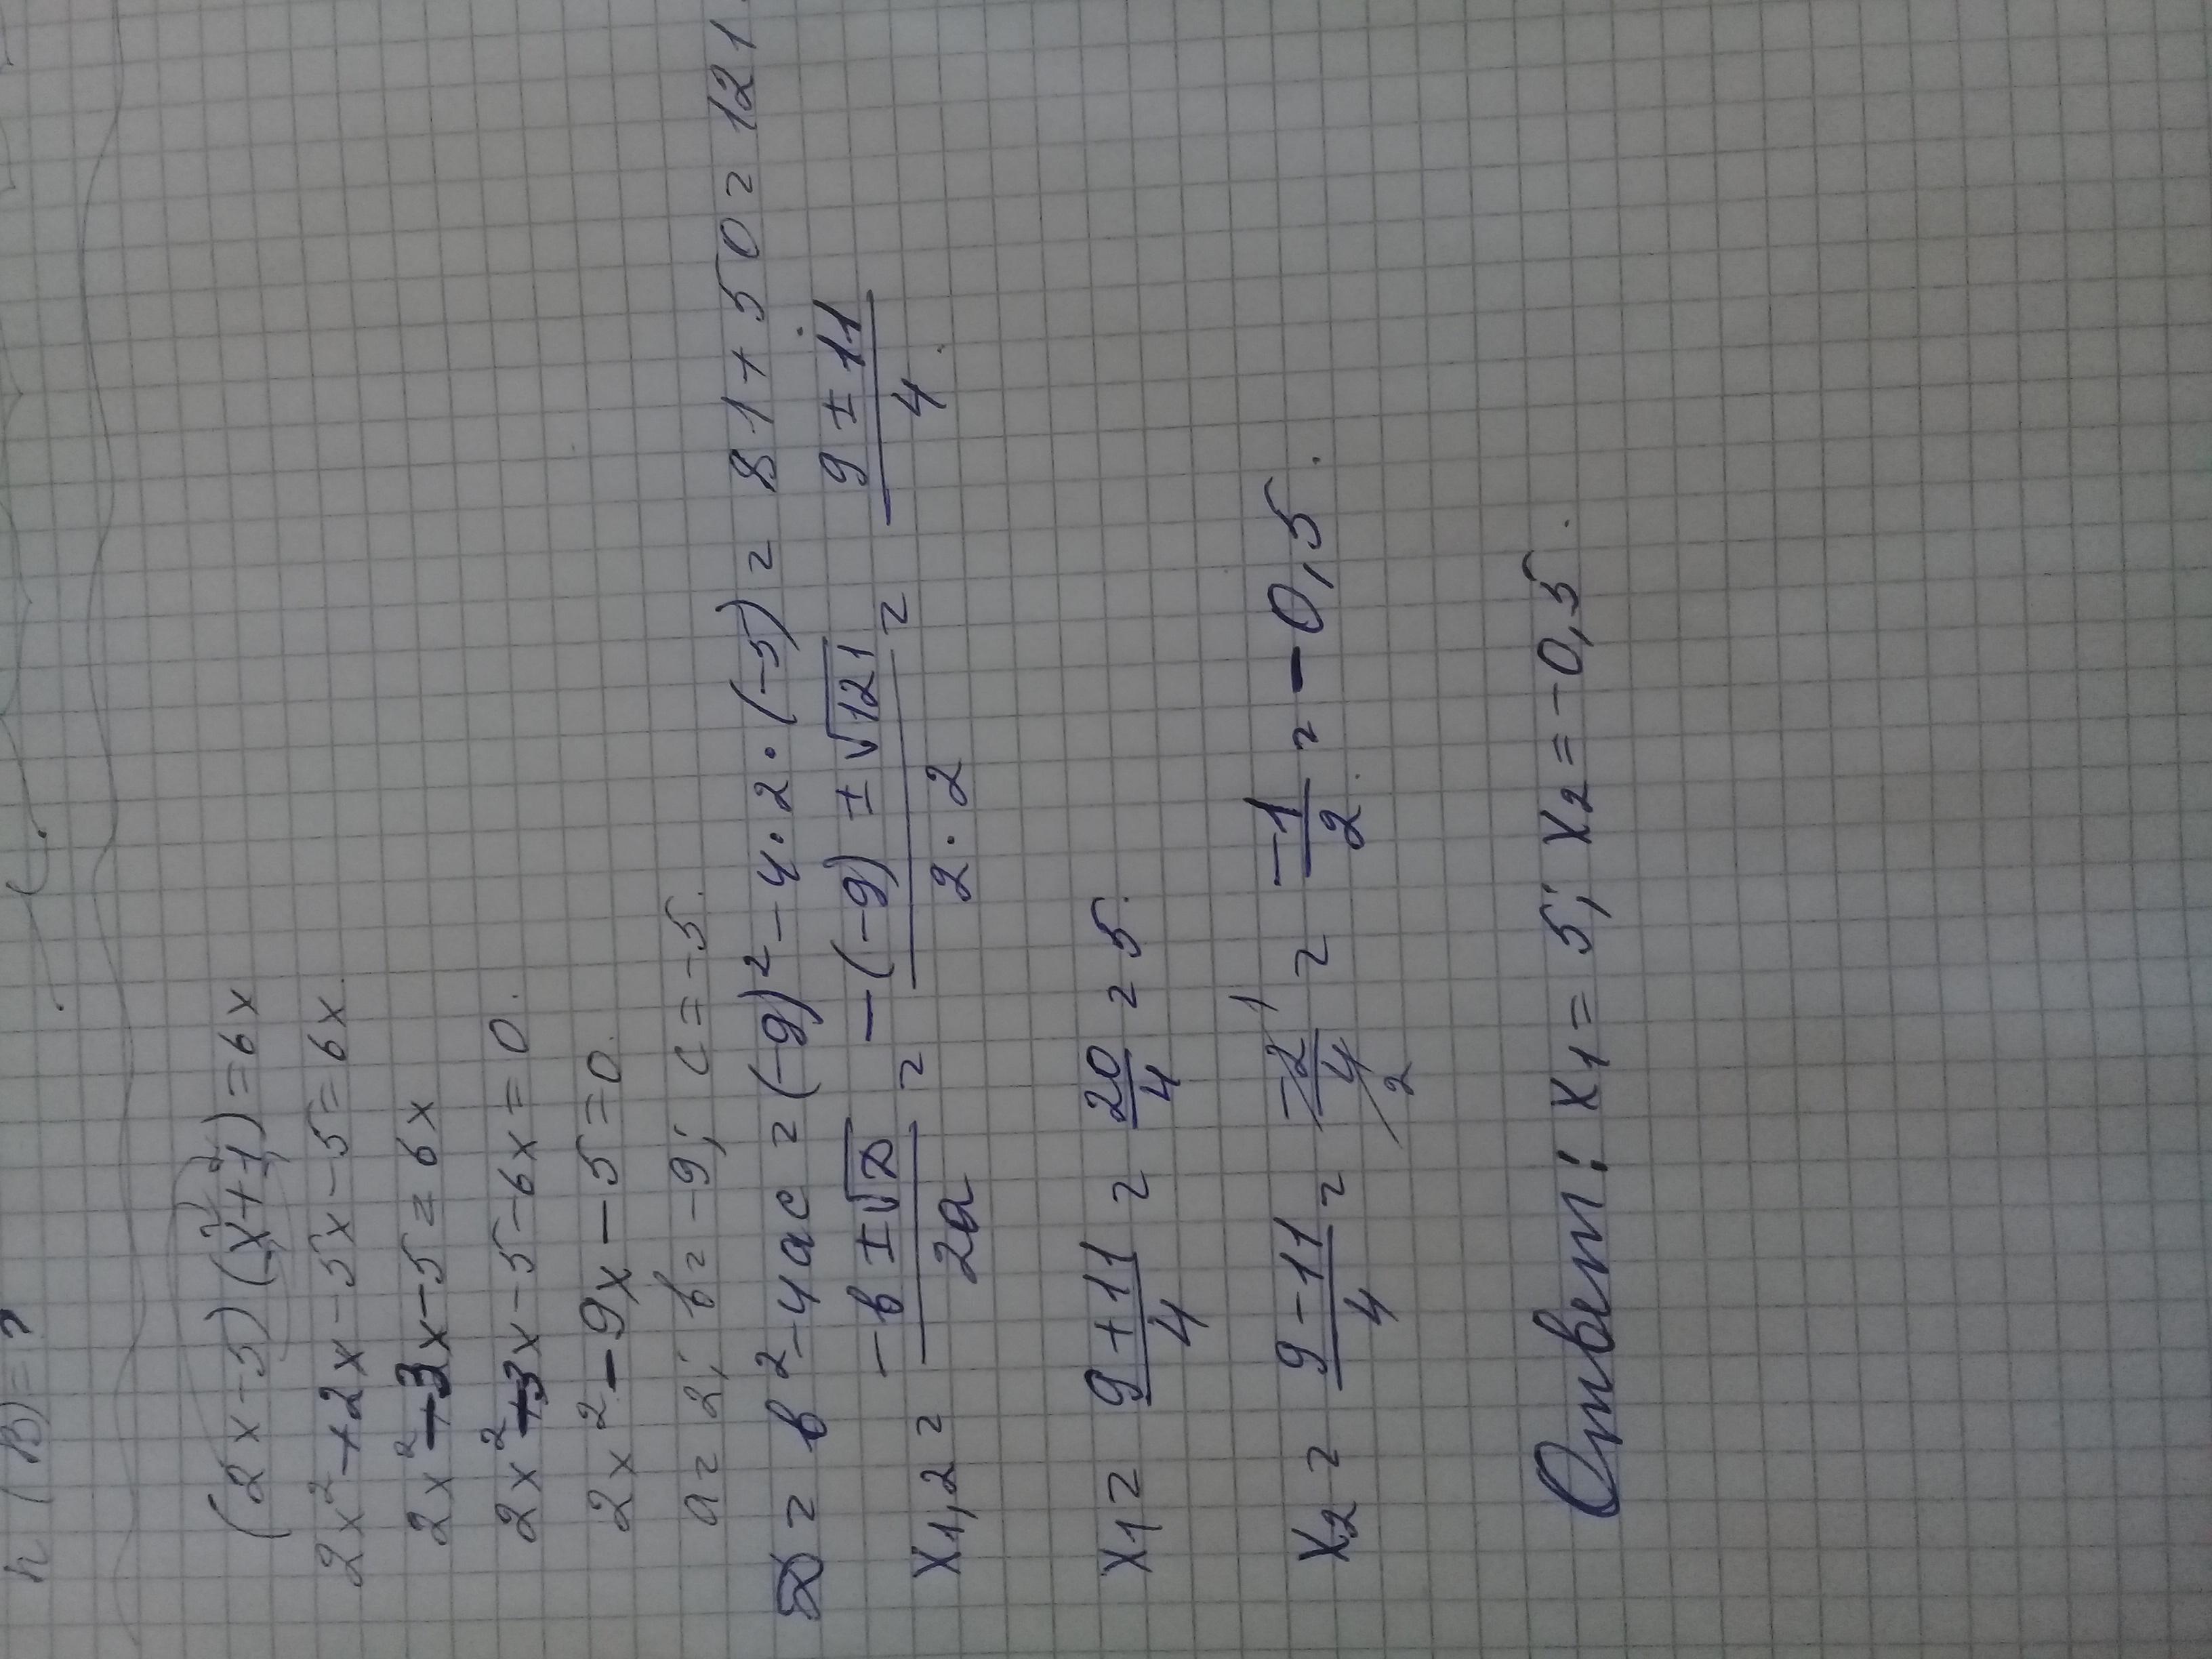 n(B)=?
(2x-5)(x+1)=6x
2x²+2x-5x-5=6x.
2x²-3x-5=6x
2x²-3x-5-6x=0.
2x²-9x-5=0.
a=2; b=-9; c=-5.
D=b²-4ac=(-9)²-4·2·(-5)=81+50=121.
x1,2=(-b±√D)/(2a)=(-(-9)±√121)/(2·2)=(9±11)/4.
x1=(9+11)/4=20/4=5.
x2=(9-11)/4=-2/4=-1/2=-0,5.
Ответ: x1=5; x2=-0,5.